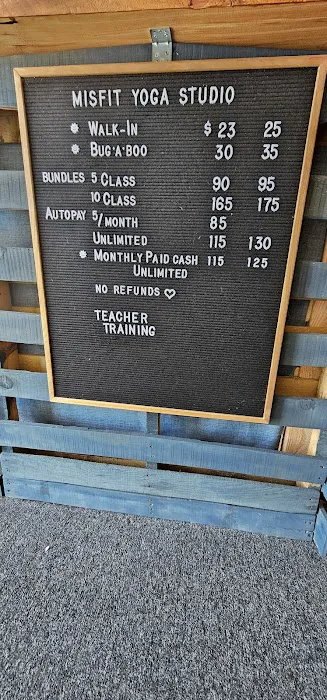 MISFIT YOGA STUDIO
* WALK-IN $ 23 25
* BUG'A'BOO 30 35
BUNDLES 5 CLASS 90 95
10 CLASS 165 175
AUTOPAY 5/MONTH 85
UNLIMITED 115 130
* MONTHLY PAID CASH 115 125
UNLIMITED
NO REFUNDS ♡
TEACHER
TRAINING